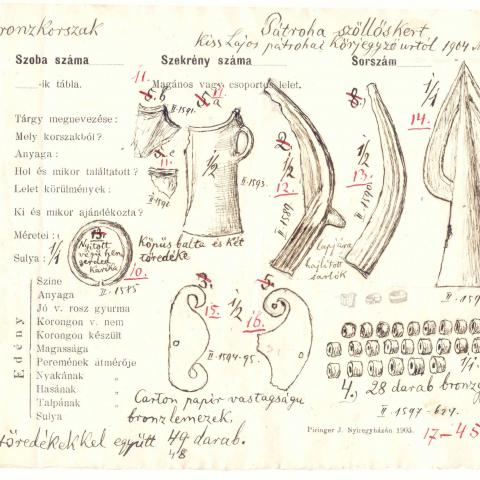 ronzkorszak
Pátroha szöllőskert
Kiss Lajos pátrohai körjegyző úrtól 1904
Szoba száma
Szekrény száma
Sorszám
-ik tábla.
Magános vagy csoportos lelet.
Tárgy megnevezése:
Mely korszakból?
Anyaga:
Hol és mikor találtatott?
Lelet körülmények:
Ki és mikor ajándékozta?
Méretei:
Sulya: 1/1
11.
b
II-1591.
a
11.
II-1593.
1/2
2
12.
1/2
II-1589
8.
13.
1/2
II-1590
1/1
14.
13.
Nyitott
végű hen
gereled
karika
10.
II-1585
Köpüs balta és két
töredéke
lapjára
hajlított
sarlók
Edény
Szine
Anyaga
Jó v. rosz gyurma
Korongon v. nem
Korongon készült
Magassága
Peremének átmérője
Nyakának „
Hasának „
Talpának „
Sulya
3.
15.
1/2
5.
16.
II-1594-95.
Carton papír vastagságu
bronzlemezek.
1/1
4. 28 darab bronzgy
II-1597-624.
Piringer J. Nyiregyházán 1903.
17-45
töredékekkel együtt 49 darab.
48